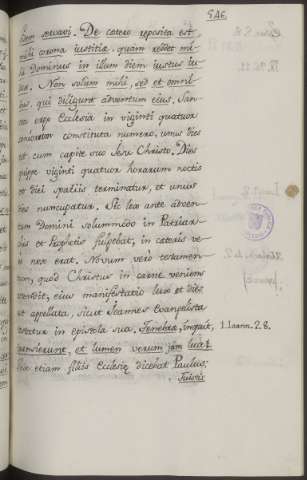 546.
fidem servavi. De cætero reposita est
mihi corona iustitiæ, quam reddet mi-
hi Dominus in illum diem iustus Iu-
dex. Non solum mihi, sed et omni-
bus, qui diligunt adventum eius. San-
cta ergo Ecclesia in viginti quatuor
constituta numero, unus dies
est cum capite suo Jesu Christo. Dies
quippe viginti quatuor horarum noctis
et diei spatiis terminatur, et unus
dies nuncupatur. Sic lex ante adven-
tum Domini solummodo in Patriar-
chis et Prophetis fulgebat, in cæteris ve-
ro nox erat. Novum vero testamen-
tum, quod Christus in carne veniens
ostendit, eius manifestatio lux et dies
est appellata, sicut Joannes Evangelista
testatur in epistola sua. Tenebræ, inquit,
transierunt, et lumen verum jam lucet.
etiam filiis Ecclesiæ dicebat Paulus:
Fuistis
1. Joann. 2. 8.